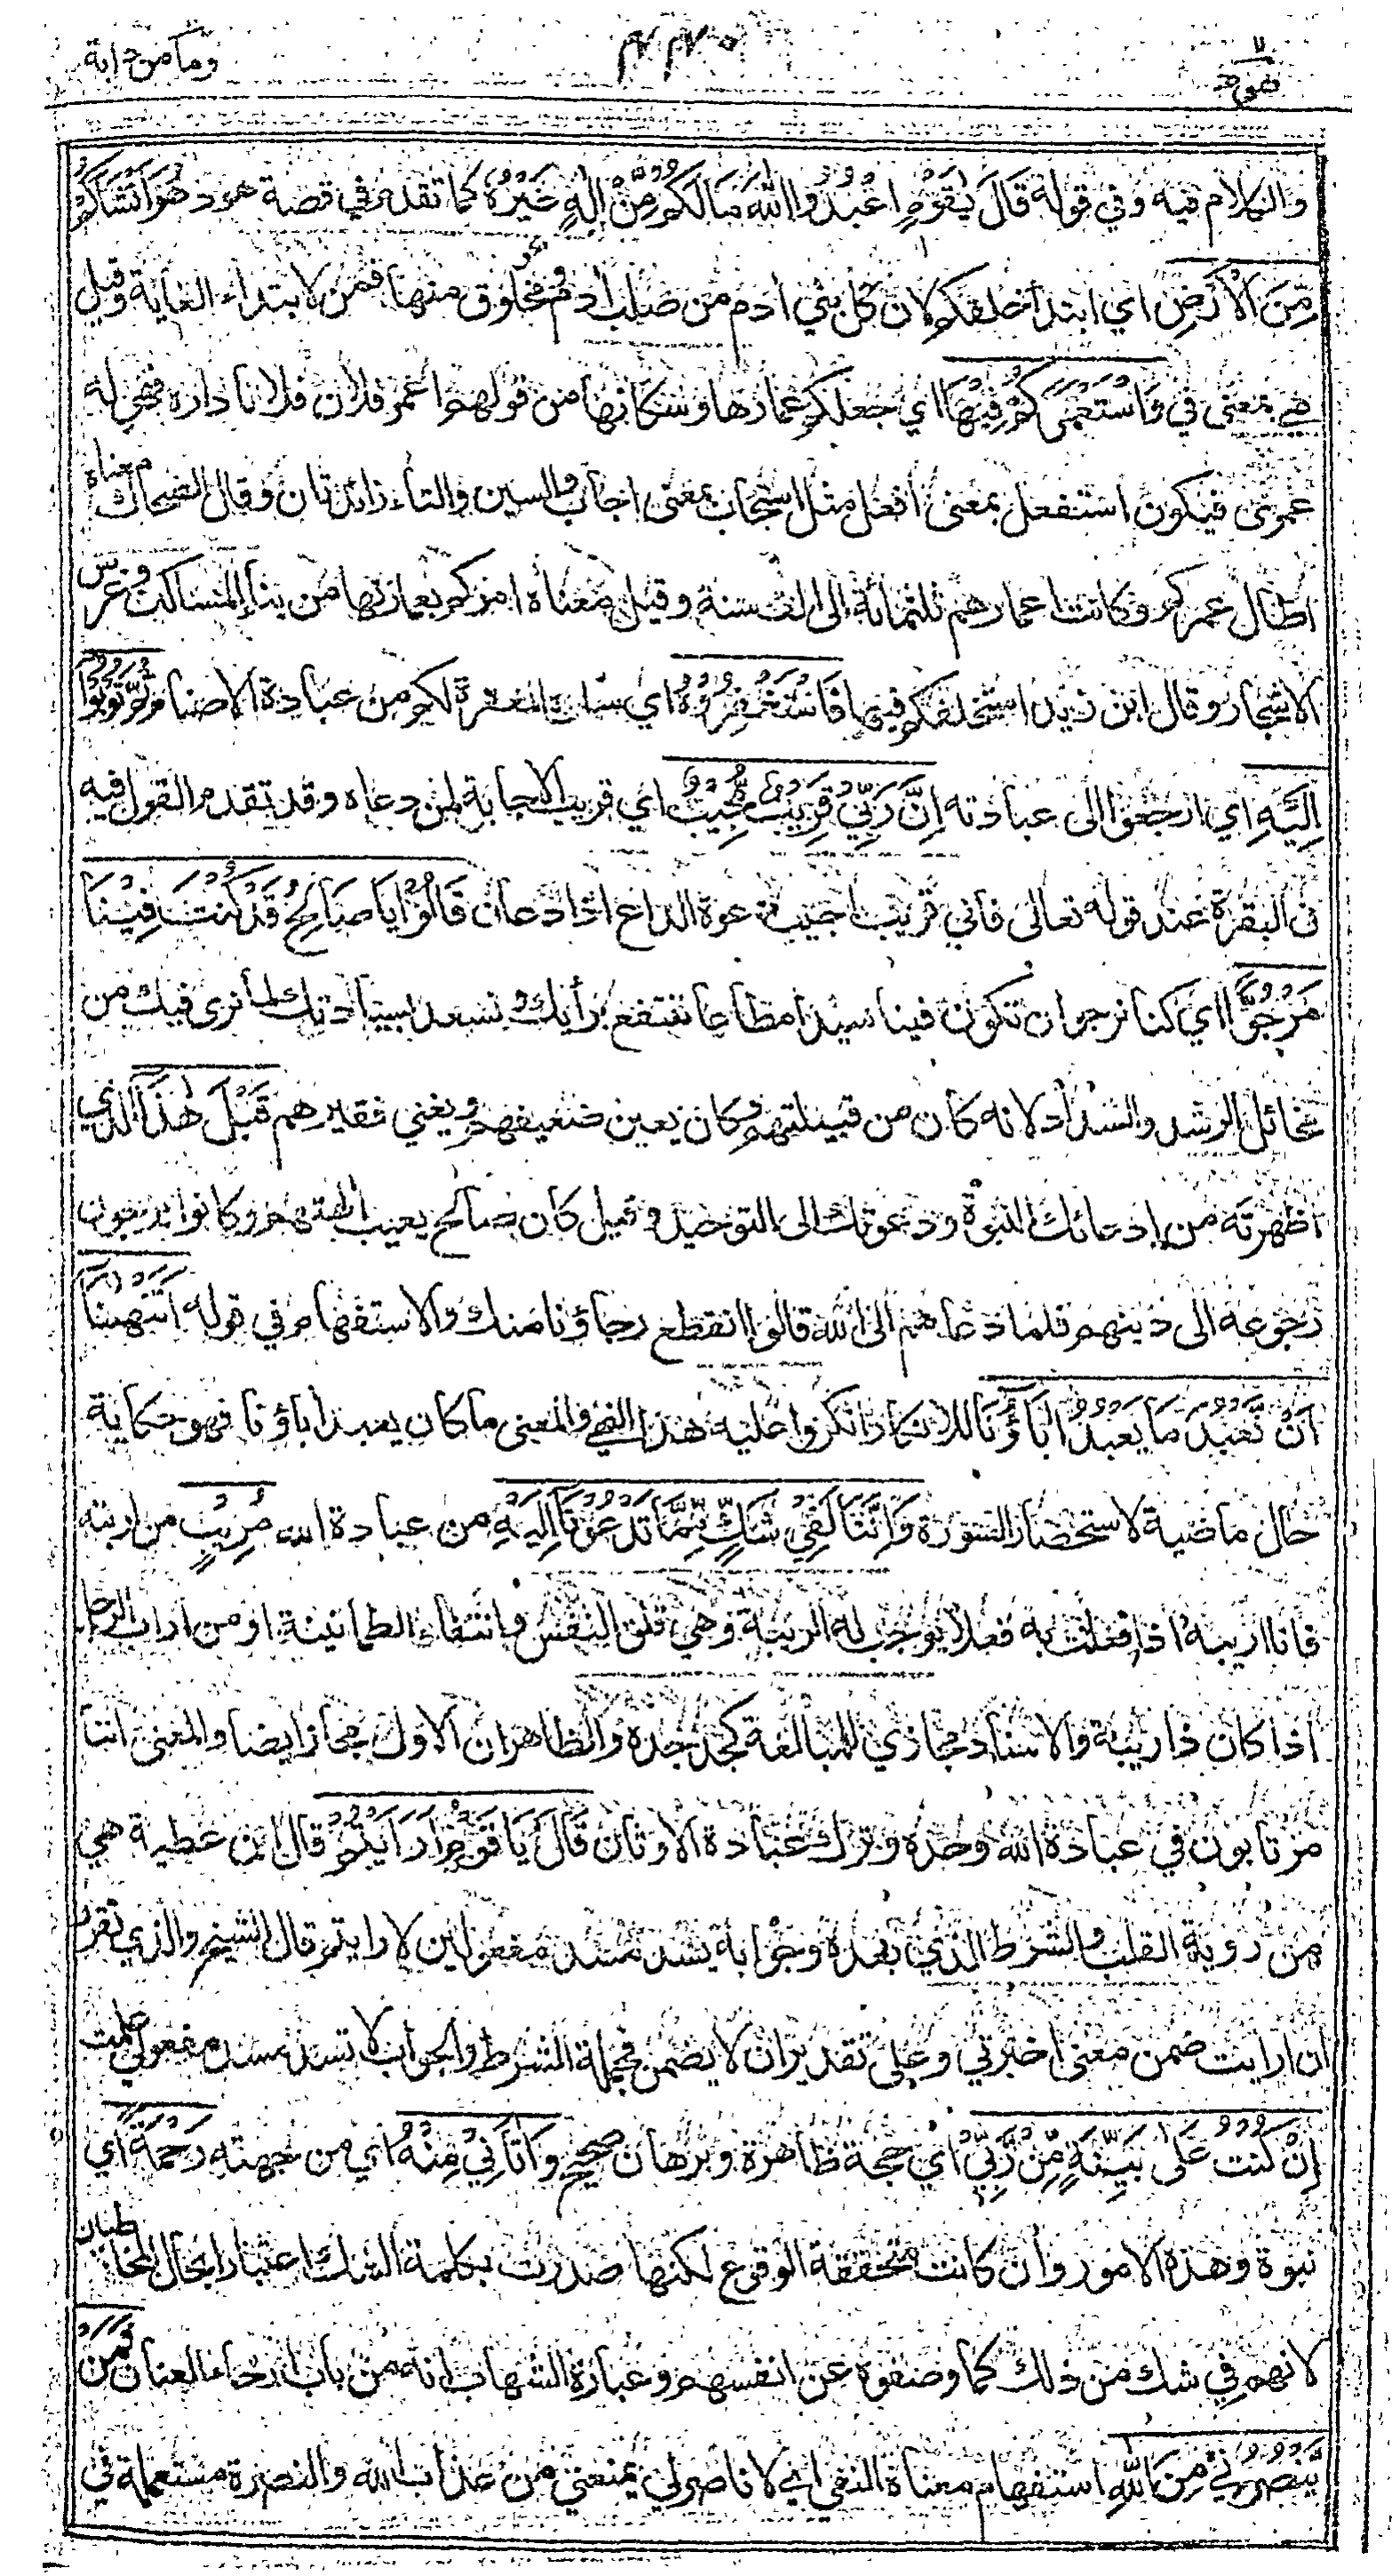 هود ١١
٤٢٠
وما من دابة
والكلام فيه وفي قوله قَالَ يٰقَوْمِ اعْبُدُوا اللّٰهَ مَا لَكُمْ مِّنْ إِلٰهٍ غَيْرُهُ كما تقدم في قصة هود هُوَ أَنْشَأَكُمْ
مِّنَ الْأَرْضِ اي ابتدأ خلقكم لان كل بني ادم من صلب ادم وهو مخلوق منها فمن لابتداء الغاية وقيل
هي بمعنى في وَاسْتَعْمَرَكُمْ فِيْهَا اي جعلكم عمارها وسكانها من قولهم اعمر فلان فلانا داره فهي له
عمرى فيكون استفعل بمعنى افعل مثل استجاب بمعنى اجاب والسين والتاء زائدتان وقال الضحاك معناه
اطال عمركم وكانت اعمارهم ثلثمائة الى الف سنة وقيل معناه امركم بعمارتها من بناء المساكن وغرس
الاشجار وقال ابن زيد استخلفكم فيها فَاسْتَغْفِرُوْهُ اي سلوه المغفرة لكم من عبادة الاصنام ثُمَّ تُوْبُوْا
إِلَيْهِ اي ارجعوا الى عبادته إِنَّ رَبِّيْ قَرِيْبٌ مُّجِيْبٌ اي قريب الاجابة لمن دعاه وقد تقدم القول فيه
في البقرة عند قوله تعالى فاني قريب اجيب دعوة الداع اذا دعان قَالُوْا يَا صَالِحُ قَدْ كُنْتَ فِيْنَا
مَرْجُوًّا اي كنا نرجو ان تكون فينا سيدا مطاعا ننتفع برأيك ونسعد بسيادتك لما نرى فيك من
مخائل الرشد والسداد لانه كان من قبيلتهم وكان يعين ضعيفهم ويغني فقيرهم قَبْلَ هٰذَا الذي
اظهرته من إدعائك النبوة ودعوتك الى التوحيد وقيل كان صالح يعيب الهتهم وكانوا يرجون
رجوعه الى دينهم فلما دعاهم الى الله قالوا انقطع رجاؤنا منك والاستفهام في قوله أَتَنْهٰىنَا
أَنْ نَّعْبُدَ مَا يَعْبُدُ آبَاؤُنَا للانكار انكروا عليه هذا النهي والمعنى ما كان يعبد اباؤنا فهو حكاية
حال ماضية لاستحضار الصورة وَإِنَّنَا لَفِيْ شَكٍّ مِّمَّا تَدْعُوْنَا إِلَيْهِ من عبادة الله مُرِيْبٍ من اربته
فانا اريبه اذا فعلت به فعلا يوجب له الريبة وهي قلق النفس وانتفاء الطمانينة او من اراب الرجل
اذا كان ذا ريبة والاسناد مجازي للمبالغة كجد جده والظاهر ان الاول مجاز ايضا والمعنى اننا
مرتابون في عبادة الله وحده وترك عبادة الاوثان قَالَ يَا قَوْمِ أَرَأَيْتُمْ قال ابن عطية هي
من روية القلب والشرط الذي بعده وجوابه يسد مسد مفعولين لارايتم قال الشيخ والذي تقرر
ان ارايت ضمن معنى اخبرني وعلى تقدير ان لا يضمن فجملة الشرط والجواب لا تسد مسد مفعولي علمت
إِنْ كُنْتُ عَلٰى بَيِّنَةٍ مِّنْ رَّبِّيْ اي حجة ظاهرة وبرهان صحيح وَآتَانِيْ مِنْهُ اي من جهته رَحْمَةً اي
نبوة وهذه الامور وان كانت متحققة الوقوع لكنها صدرت بكلمة الشك اعتبارا بحال المخاطبين
لانهم في شك من ذلك كما وصفوه عن انفسهم وعبارة الشهاب انه من باب ارخاء العنان فَمَنْ
يَّنْصُرُنِيْ مِنَ اللّٰهِ استفهام معناه النفي اي لا ناصر لي يمنعني من عذاب الله والنصرة مستعملة في